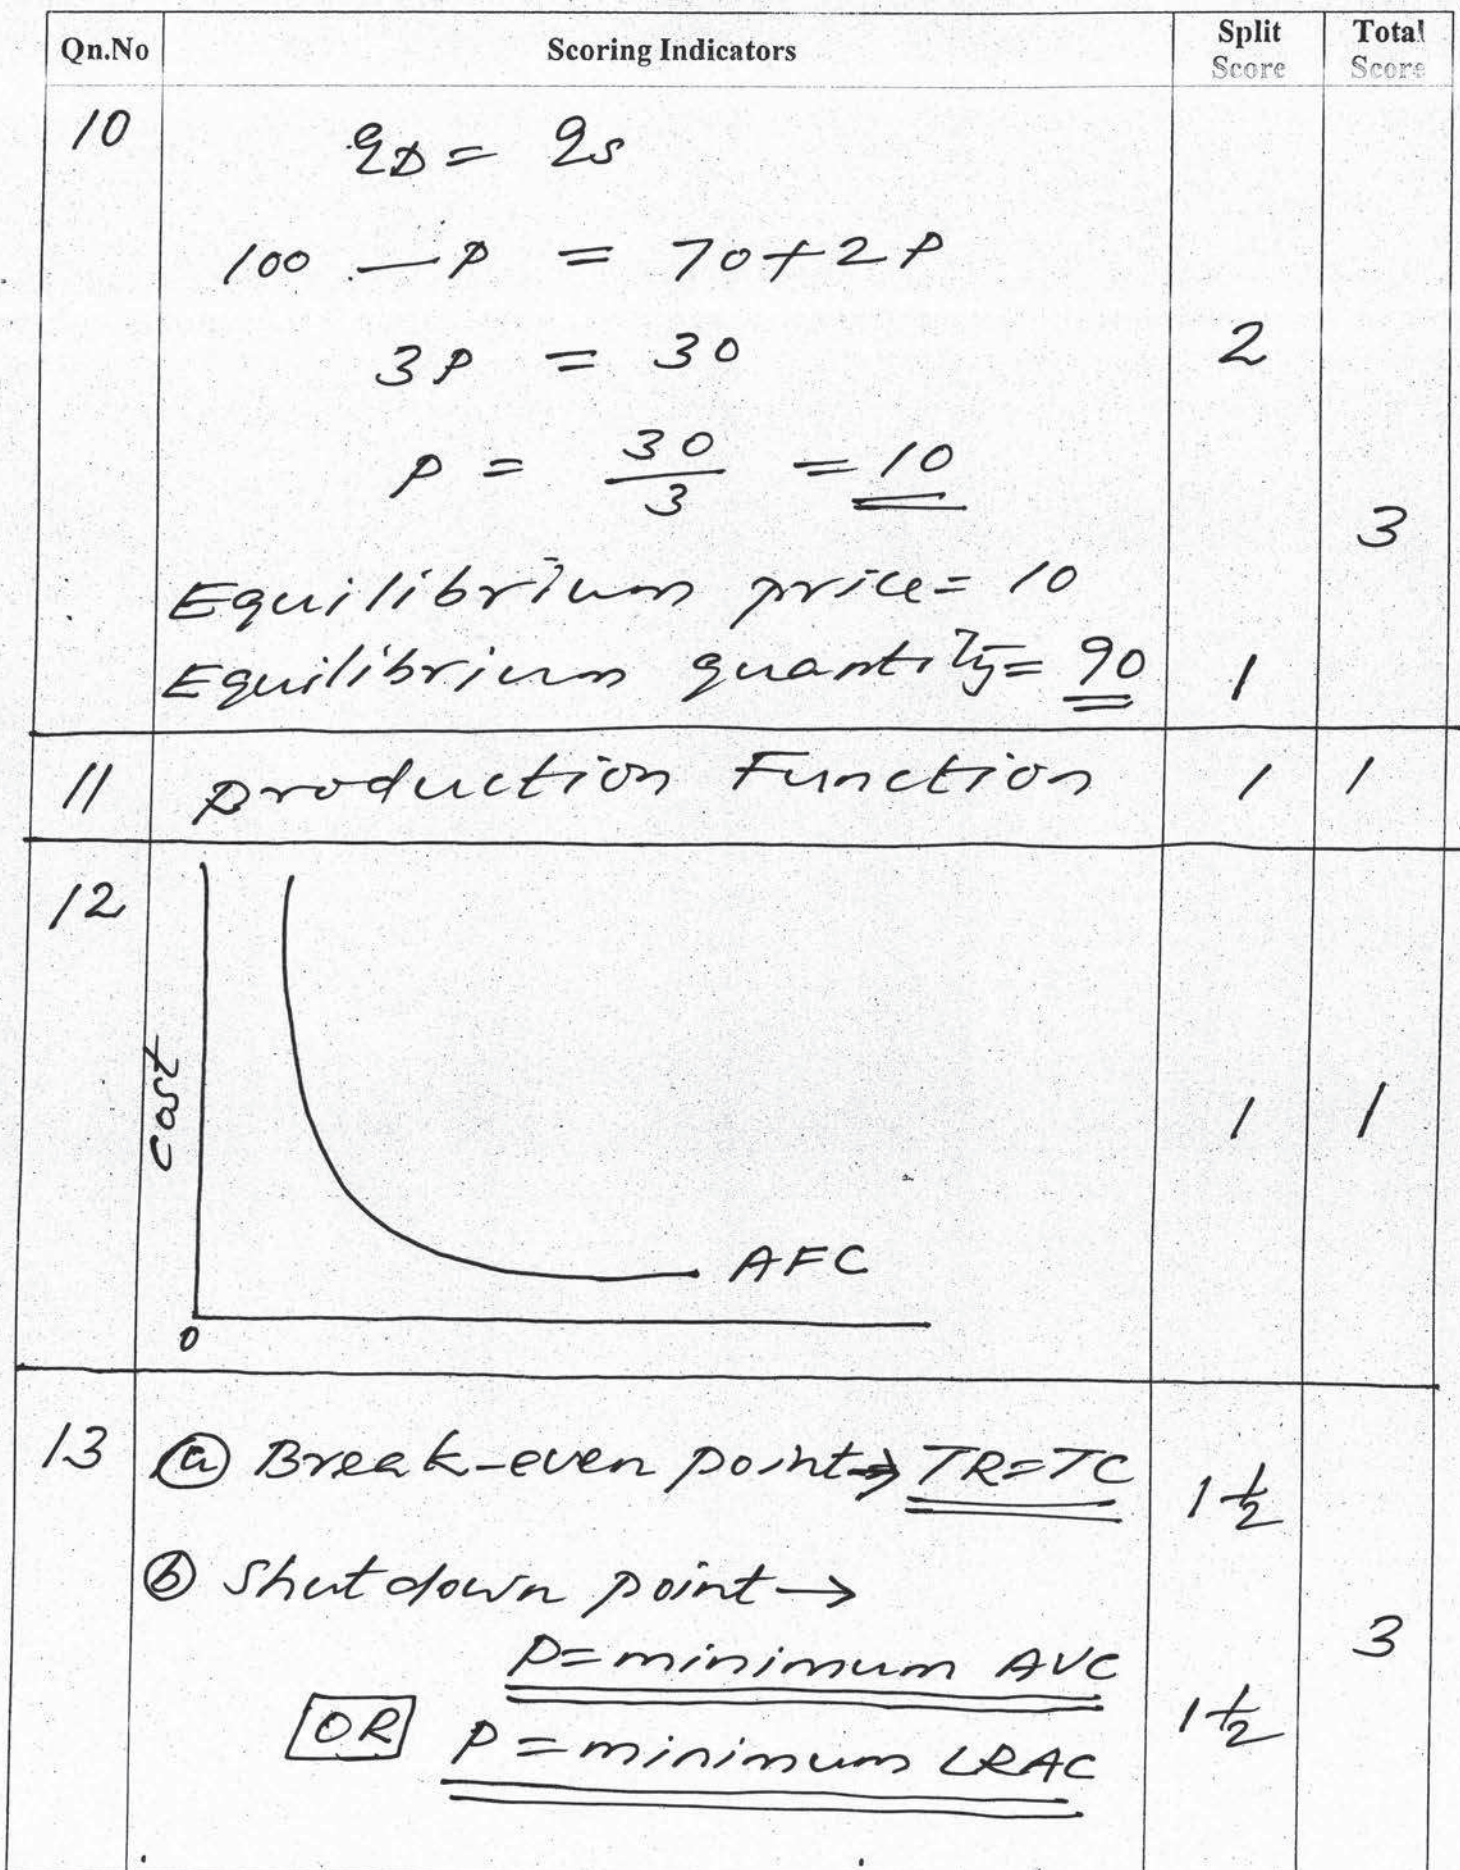 Qn.No Scoring Indicators Split Score Total Score
10 qD = qs
100 – P = 70+2P
3P = 30 2
P = 30/3 = 10
3
Equilibrium price= 10
Equilibrium quantity= 90 1
11 production Function 1 1
12
Cost 1 1
AFC
0
13 ⓐ Break-even point→ TR=TC 1½
ⓑ Shutdown point→
P=minimum AVC 3
OR P=minimum LRAC 1½